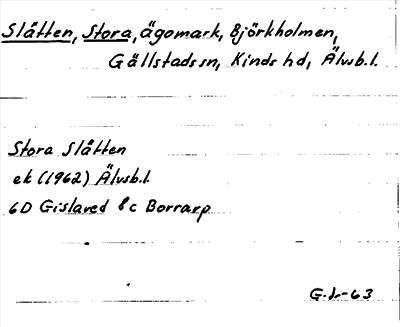 Slåtten, Stora, ägomark, Björkholmen,
Gällstads sn, Kinds hd, Älvsb.l.
Stora Slåtten
ek (1962) Älvsb.l.
6D Gislaved 8c Borrarp
63